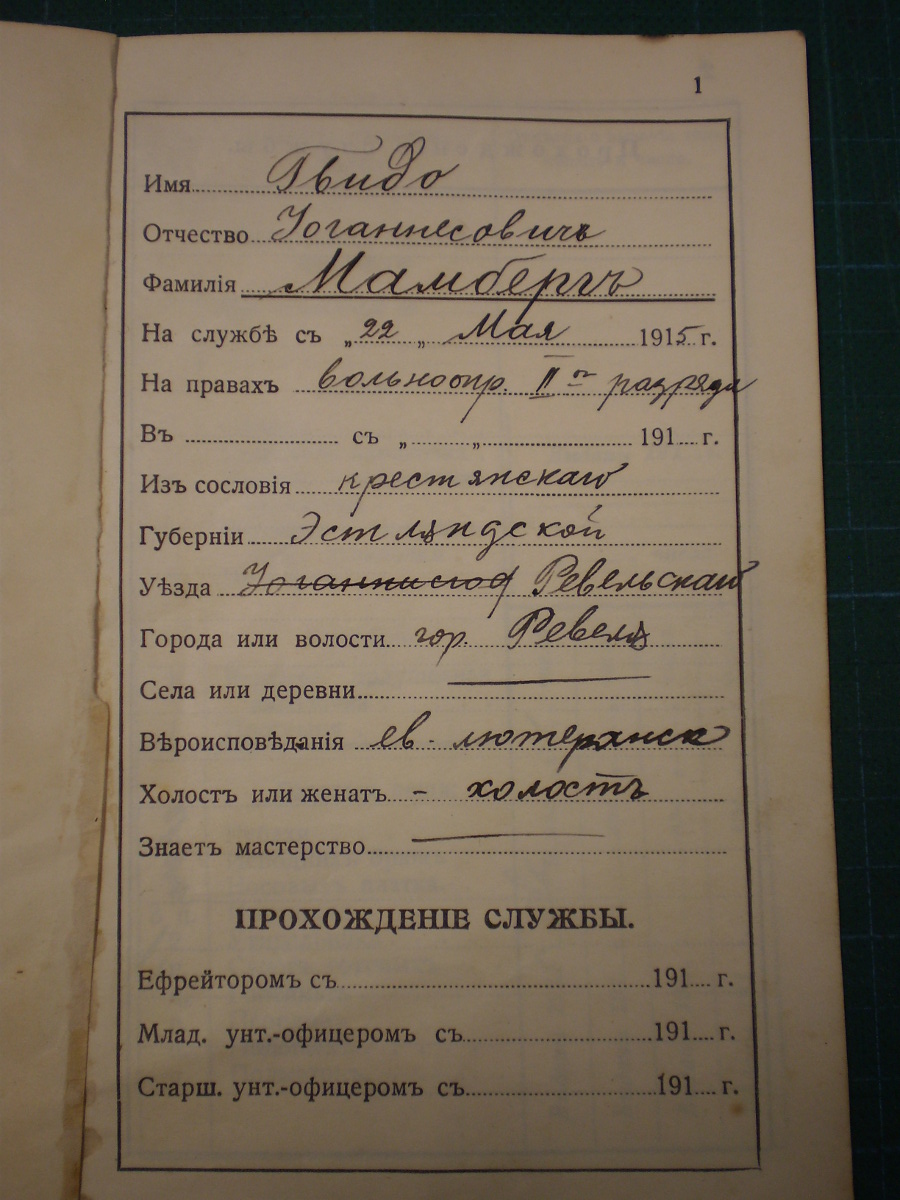 1
Имя Гвидо
Отчество Іоганнесовичъ
Фамилія Мамбергъ
На службѣ съ „22„ Мая 1915 г.
На правахъ вольноопр. II го разряда
Въ съ „ „ 191 г.
Изъ сословія крестянскаго
Губерніи Эстляндской
Уѣзда Ревельскаго
Города или волости гор. Ревеля
Села или деревни
Вѣроисповѣданія ев - лютеранск
Холостъ или женатъ - холостъ
Знаетъ мастерство
ПРОХОЖДЕНІЕ СЛУЖБЫ.
Ефрейторомъ съ 191 г.
Млад. унт.-офицеромъ съ 191 г.
Старш. унт.-офицеромъ съ 191 г.